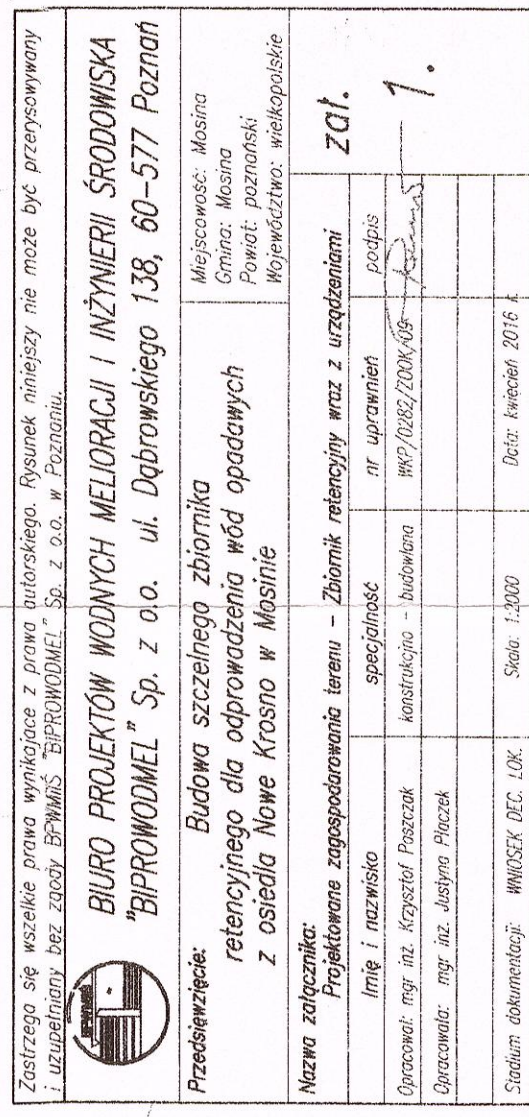 Zastrzega się wszelkie prawa wynikające z prawa autorskiego. Rysunek niniejszy nie może być przerysowywany
i uzupełniany bez zgody BPWMiIŚ "BIPROWODMEL" Sp. z o.o. w Poznaniu.
BPWMiIŚ
BIURO PROJEKTÓW WODNYCH MELIORACJI I INŻYNIERII ŚRODOWISKA
"BIPROWODMEL" Sp. z o.o. ul. Dąbrowskiego 138, 60-577 Poznań
Przedsięwzięcie: Budowa szczelnego zbiornika
retencyjnego dla odprowadzenia wód opadawych
z osiedla Nowe Krosno w Mosinie
Miejscowość: Mosina
Gmina: Mosina
Powiat: poznański
Województwo: wielkopolskie
Nazwa załącznika:
Projektowane zagospodarowania terenu - Zbiornik retencyjny wraz z urządzeniami
zał.
1.
Imię i nazwisko specjalność nr uprawnień podpis
Opracował: mgr inż. Krzysztof Paszczak konstrukcjno - budowlana WKP/0282/ZOOK/09
Opracowała: mgr inż. Justyna Płaczek
Stadium dokumentacji: WNIOSEK DEC. LOK. Skala: 1:2000 Data: kwiecień 2016 r.